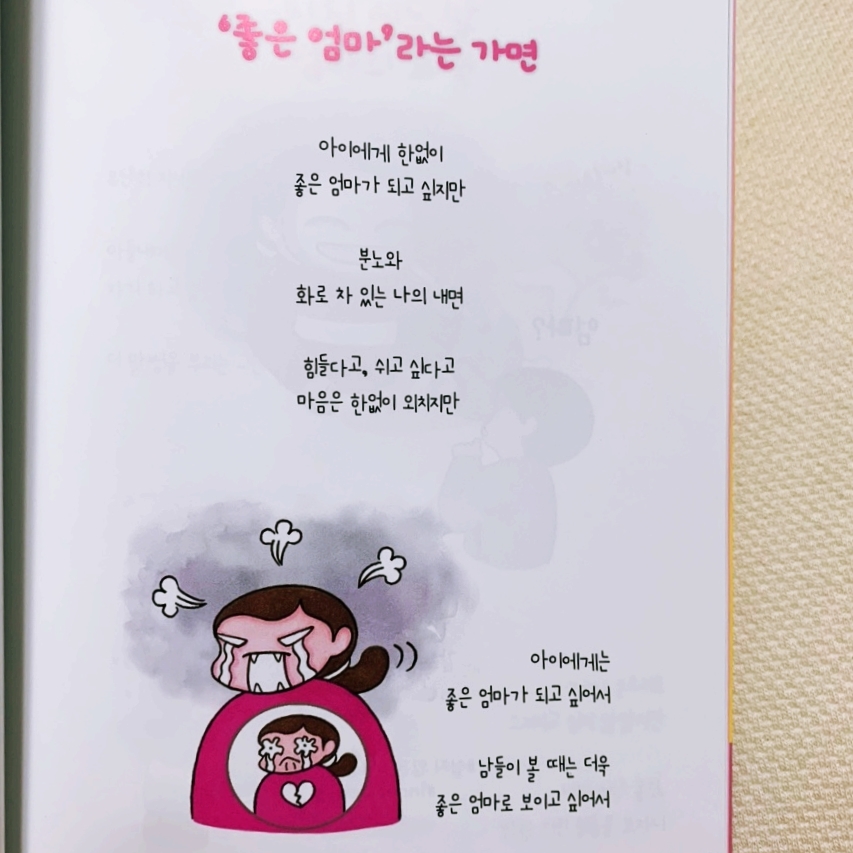 '좋은 엄마'라는 가면
아이에게 한없이
좋은 엄마가 되고 싶지만
분노와
화로 차 있는 나의 내면
힘들다고, 쉬고 싶다고
마음은 한없이 외치지만
아이에게는
좋은 엄마가 되고 싶어서
남들이 볼 때는 더욱
좋은 엄마로 보이고 싶어서